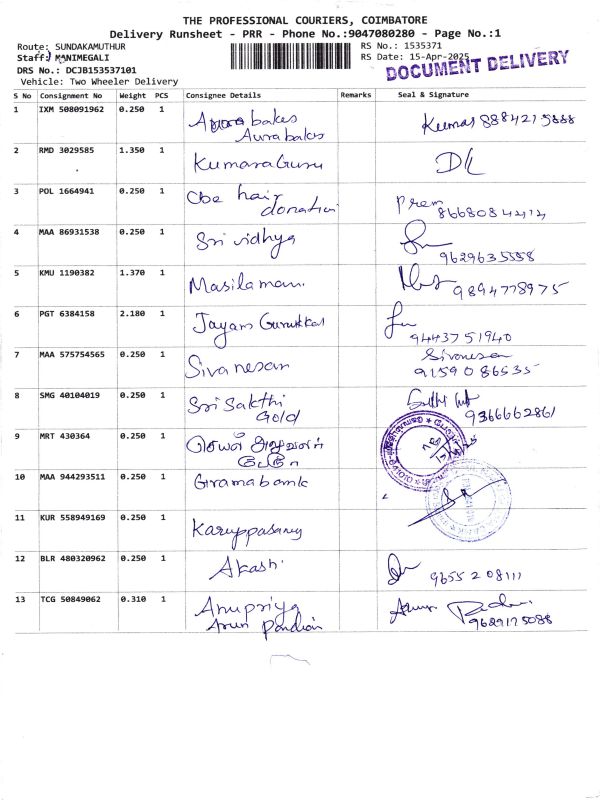 THE PROFESSIONAL COURIERS, COIMBATORE
Delivery Runsheet - PRR - Phone No.:9047080280 - Page No.:1
Route: SUNDAKAMUTHUR
RS No.: 1535371
Staff: MANIMEGALI
RS Date: 15-Apr-2025
DOCUMENT DELIVERY
DRS No.: DCJB153537101
Vehicle: Two Wheeler Delivery
S No Consignment No Weight PCS Consignee Details Remarks Seal & Signature
1 IXM 508091962 0.250 1 Aurabakes Kumar 8884215888
Aurabakes
2 RMD 3029585 1.350 1 Kumaraguru
3 POL 1664941 0.250 1 Cbe hair Prem
donation
4 MAA 86931538 0.250 1 Sri vidhya
9629635558
5 KMU 1190382 1.370 1 Masilamani 9894778975
6 PGT 6384158 2.180 1 Jayam Gurukkal
9443751940
7 MAA 575754565 0.250 1 Sivanesan Sivanesan
9159086535
8 SMG 40104019 0.250 1 Sri Sakthi
Gold 9366662861
9 MRT 430364 0.250 1
10 MAA 944293511 0.250 1 Gramabank
11 KUR 558949169 0.250 1 Karuppasamy
12 BLR 480320962 0.250 1 Akash 9655208111
13 TCG 50849062 0.310 1 Anupriya
Arun Pandian 9629175088